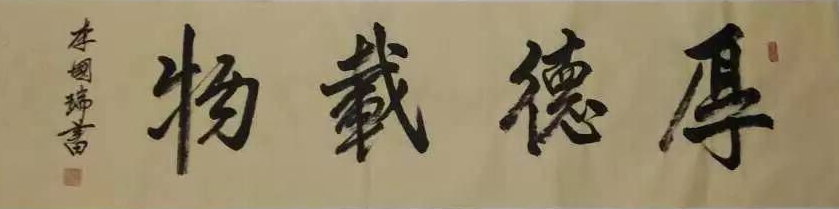 厚德載物
李國瑞書